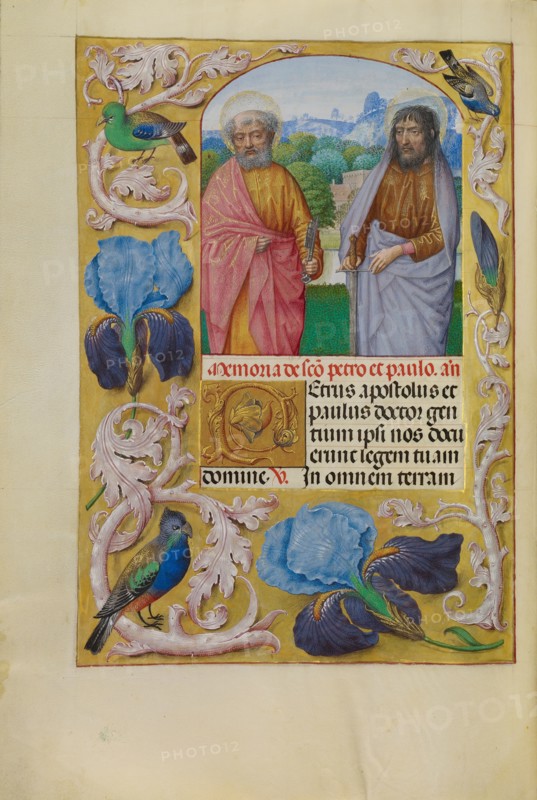 Memoria de scō petro et paulo. añ
Petrus apostolus et
paulus doctor gen
tium ipsi nos docu
erunt legem tuam
domine. V. In omnem terram
PHOTO12